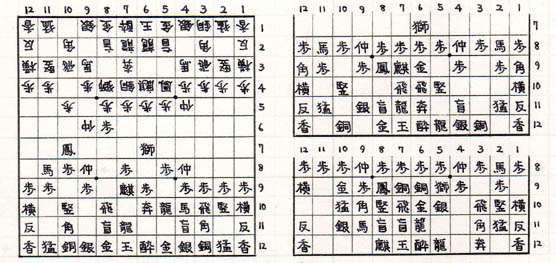 12 11 10 9 8 7 6 5 4 3 2 1
香 猛 銀 金 酔 王 金 銀 銅 猛 香 1
反 角 盲 龍 盲 角 反 2
横 竪 飛 馬 奔 馬 飛 竪 横 3
4
歩 歩 歩 歩 歩 仲 5
仲 歩 6
鳳 獅 7
馬 歩 仲 歩 歩 仲 8
歩 歩 歩 麒 歩 歩 歩 歩 歩 9
横 竪 飛 奔 龍 馬 飛 竪 横 10
反 角 盲 龍 盲 角 反 11
香 猛 銅 銀 金 玉 酔 金 銀 銅 猛 香 12
12 11 10 9 8 7 6 5 4 3 2 1
獅 7
歩 馬 歩 仲 歩 歩 歩 歩 仲 歩 馬 歩 8
角 歩 歩 鳳 麒 金 歩 歩 角 9
横 竪 飛 飛 竪 横 10
反 猛 銀 盲 龍 奔 盲 猛 反 11
香 銅 金 玉 酔 龍 銀 銅 香 12
12 11 10 9 8 7 6 5 4 3 2 1
歩 歩 歩 仲 歩 歩 歩 歩 仲 歩 馬 歩 8
横 金 歩 鳳 銅 銅 獅 歩 歩 9
猛 角 竪 飛 金 銀 飛 竪 横 10
反 銀 馬 盲 盲 龍 角 猛 反 11
香 麒 玉 酔 奔 香 12